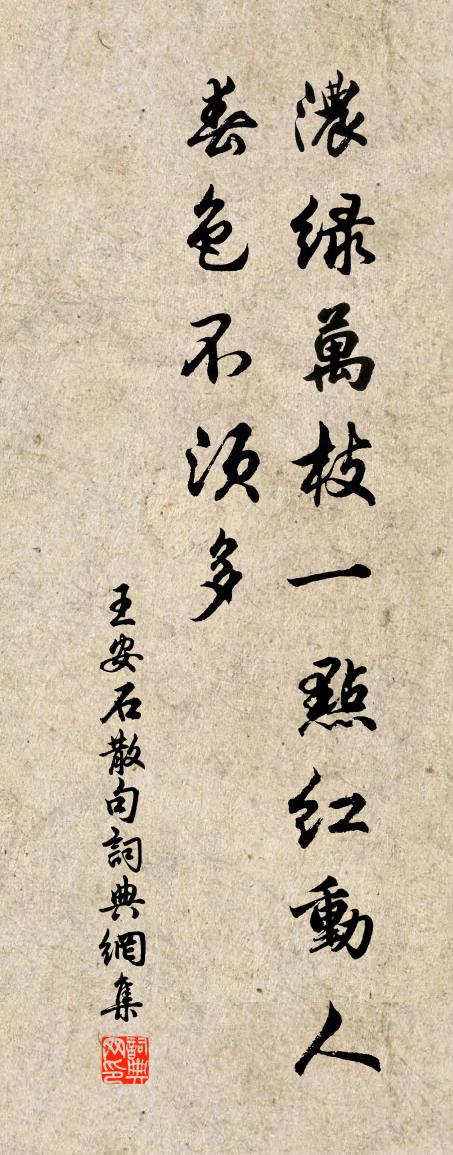 濃绿萬枝一點红動人
春色不須多
王安石散句詞典網集
詞典网印